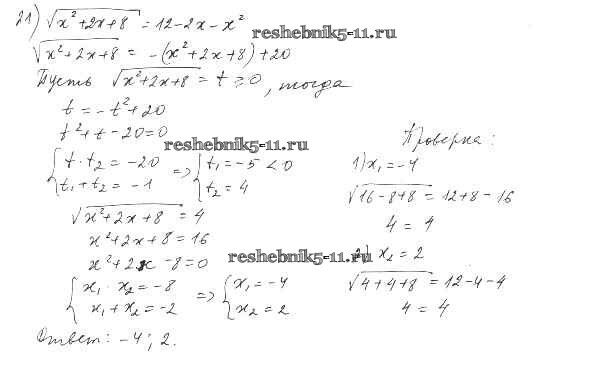 21) √(x²+2x+8) = 12-2x-x²
reshebnik5-11.ru
√(x²+2x+8) = -(x²+2x+8)+20
Пусть √(x²+2x+8) = t ≥ 0, тогда
t = -t²+20
t²+t-20=0
reshebnik5-11.ru
{ t·t₂ = -20
t₁+t₂ = -1
=> { t₁ = -5 < 0
t₂ = 4
√(x²+2x+8) = 4
x²+2x+8 = 16
x²+2x-8=0
reshebnik5-11.ru
{ x₁·x₂ = -8
x₁+x₂ = -2
=> { x₁ = -4
x₂ = 2
Ответ: -4; 2.
Проверка:
1) x₁ = -4
√(16-8+8) = 12+8-16
4 = 4
2) x₂ = 2
√(4+4+8) = 12-4-4
4 = 4